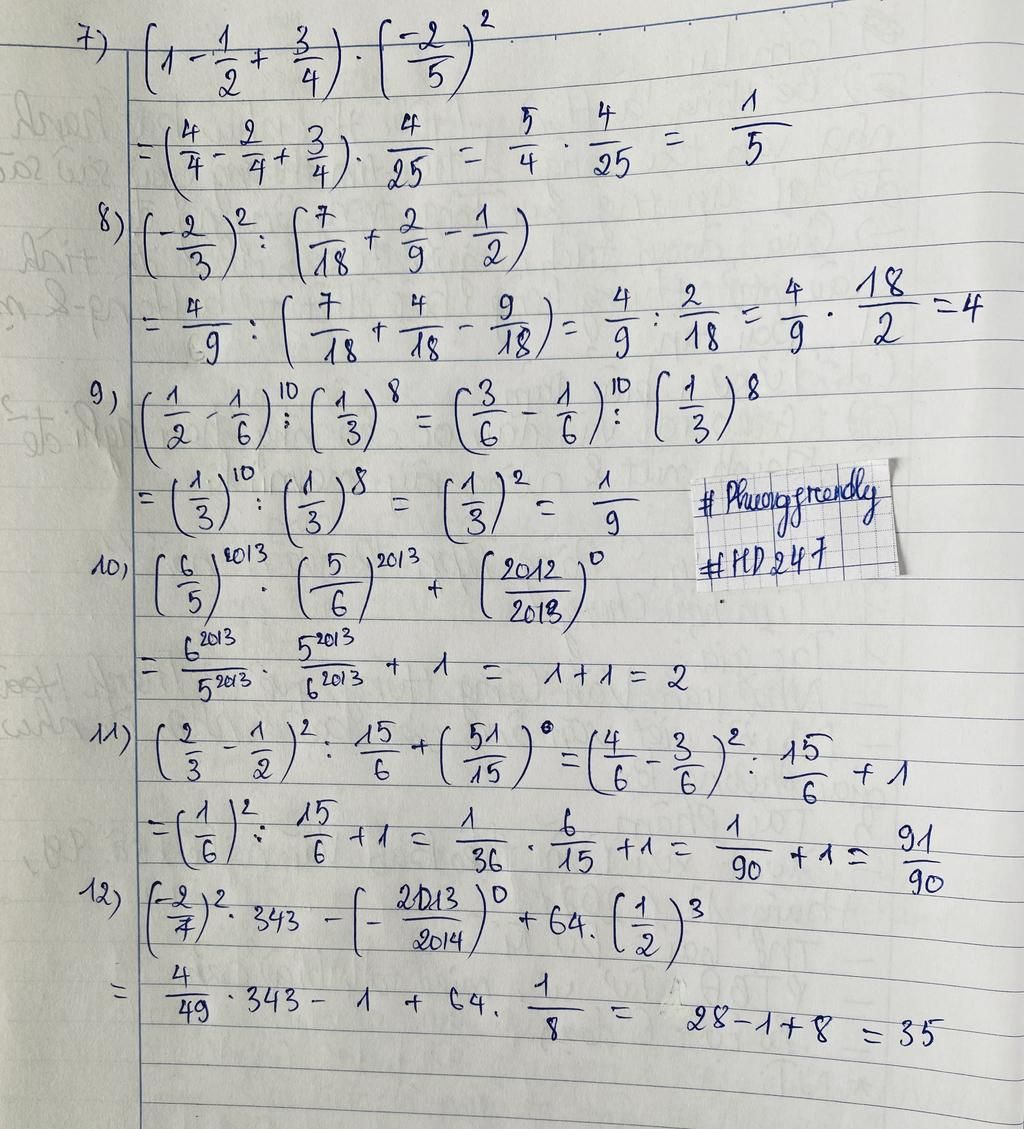 7) (1 - 1/2 + 3/4) . (-2/5)^2
= (4/4 - 2/4 + 3/4) . 4/25 = 5/4 . 4/25 = 1/5
8) (-2/3)^2 : (7/18 + 2/9 - 1/2)
= 4/9 : (7/18 + 4/18 - 9/18) = 4/9 : 2/18 = 4/9 . 18/2 = 4
9) (1/2 - 1/6)^10 : (1/3)^8 = (3/6 - 1/6)^10 : (1/3)^8
= (1/3)^10 : (1/3)^8 = (1/3)^2 = 1/9
# Phuongfreendly
# HD247
10) (6/5)^2013 . (5/6)^2013 + (2012/2013)^0
= 6^2013/5^2013 . 5^2013/6^2013 + 1 = 1 + 1 = 2
11) (2/3 - 1/2)^2 : 15/6 + (51/15)^0 = (4/6 - 3/6)^2 : 15/6 + 1
= (1/6)^2 : 15/6 + 1 = 1/36 . 6/15 + 1 = 1/90 + 1 = 91/90
12) (-2/7)^2 . 343 - (-2013/2014)^0 + 64 . (1/2)^3
= 4/49 . 343 - 1 + 64 . 1/8 = 28 - 1 + 8 = 35